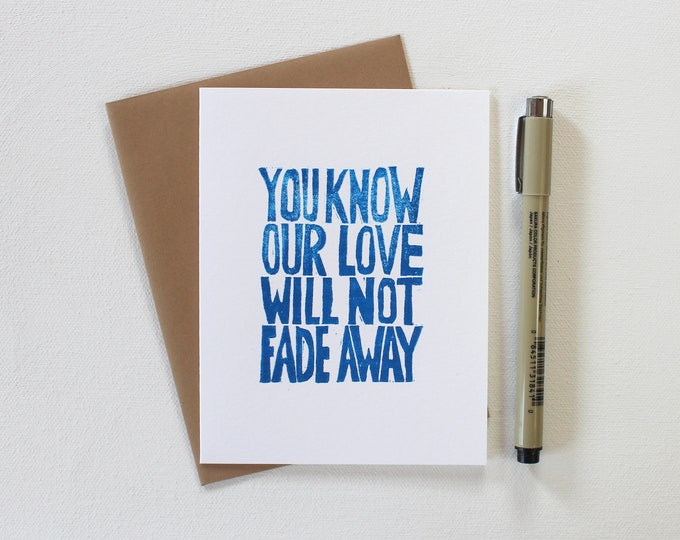 YOU KNOW
OUR LOVE
WILL NOT
FADE AWAY
SAKURA COLOR PRODUCTS CORPORATION